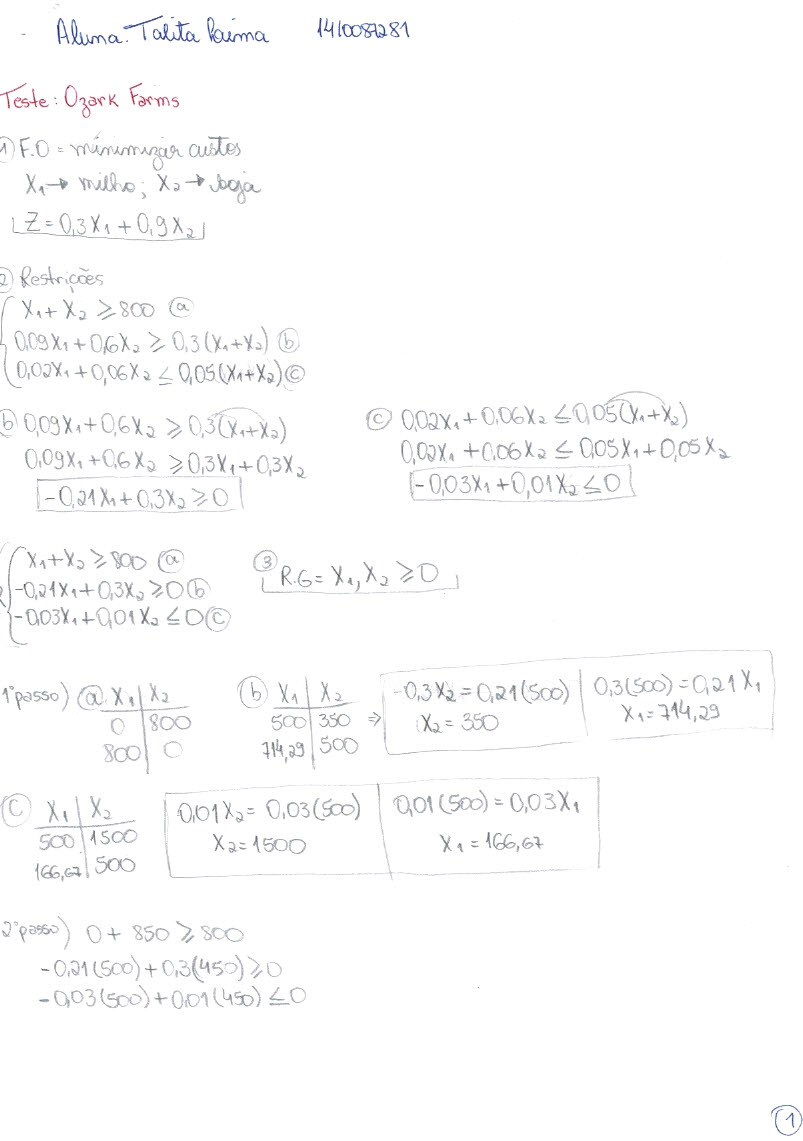 Aluna: Talita Paima 1410087281
Teste: Ozark Farms
1) F.O = minimizar custos
X₁→ milho; X₂→ soja
Z = 0,3X₁ + 0,9X₂
2) Restrições
X₁ + X₂ ≥ 800 (a)
0,09X₁ + 0,6X₂ ≥ 0,3(X₁+X₂) (b)
0,02X₁ + 0,06X₂ ≤ 0,05(X₁+X₂) (c)
(b) 0,09X₁ + 0,6X₂ ≥ 0,3(X₁+X₂)
0,09X₁ + 0,6X₂ ≥ 0,3X₁ + 0,3X₂
-0,21X₁ + 0,3X₂ ≥ 0
(c) 0,02X₁ + 0,06X₂ ≤ 0,05(X₁+X₂)
0,02X₁ + 0,06X₂ ≤ 0,05X₁ + 0,05X₂
-0,03X₁ + 0,01X₂ ≤ 0
X₁ + X₂ ≥ 800 (a)
-0,21X₁ + 0,3X₂ ≥ 0 (b)
-0,03X₁ + 0,01X₂ ≤ 0 (c)
(3) R.G = X₁, X₂ ≥ 0
1º passo) (a) X₁ | X₂
0 | 800
800 | 0
(b) X₁ | X₂
500 | 350 ⇒
714,29 | 500
-0,3X₂ = 0,21(500)
X₂ = 350
0,3(500) = 0,21X₁
X₁ = 714,29
(C) X₁ | X₂
500 | 1500
166,67 | 500
0,01X₂ = 0,03(500)
X₂ = 1500
0,01(500) = 0,03X₁
X₁ = 166,67
2º passo) 0 + 850 ≥ 800
-0,21(500) + 0,3(450) ≥ 0
-0,03(500) + 0,01(450) ≤ 0
(1)